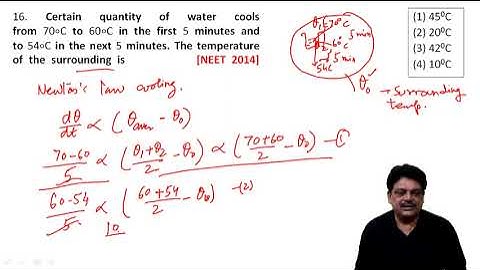 16. Certain quantity of water cools
from 70∘C to 60∘C in the first 5 minutes and
to 54∘C in the next 5 minutes. The temperature
of the surrounding is [NEET 2014]
(1) 45⁰C
(2) 20⁰C
(3) 42⁰C
(4) 10⁰C
θ₁=70°C
60°C
5 min
5 min
54°C
θ₀
→ Surrounding
temp.
Newton's law cooling.
dθ/dt ∝ (θaver − θ₀)
70-60/5 ∝ (θ₁+θ₂/2 − θ₀) ∝ (70+60/2 − θ₀) —①
60-54/5 ∝ (60+54/2 − θ₀) —(2)